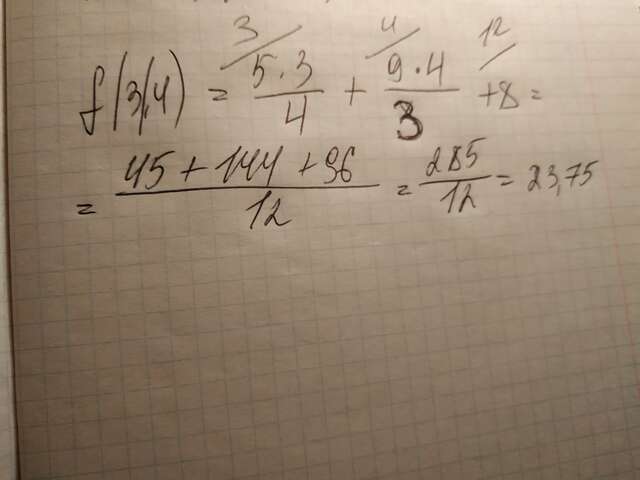 f(3,4) = 3/ 5·3/4 + 4/ 9·4/3 12/ +8 =
= 45+144+96/12 = 285/12 = 23,75